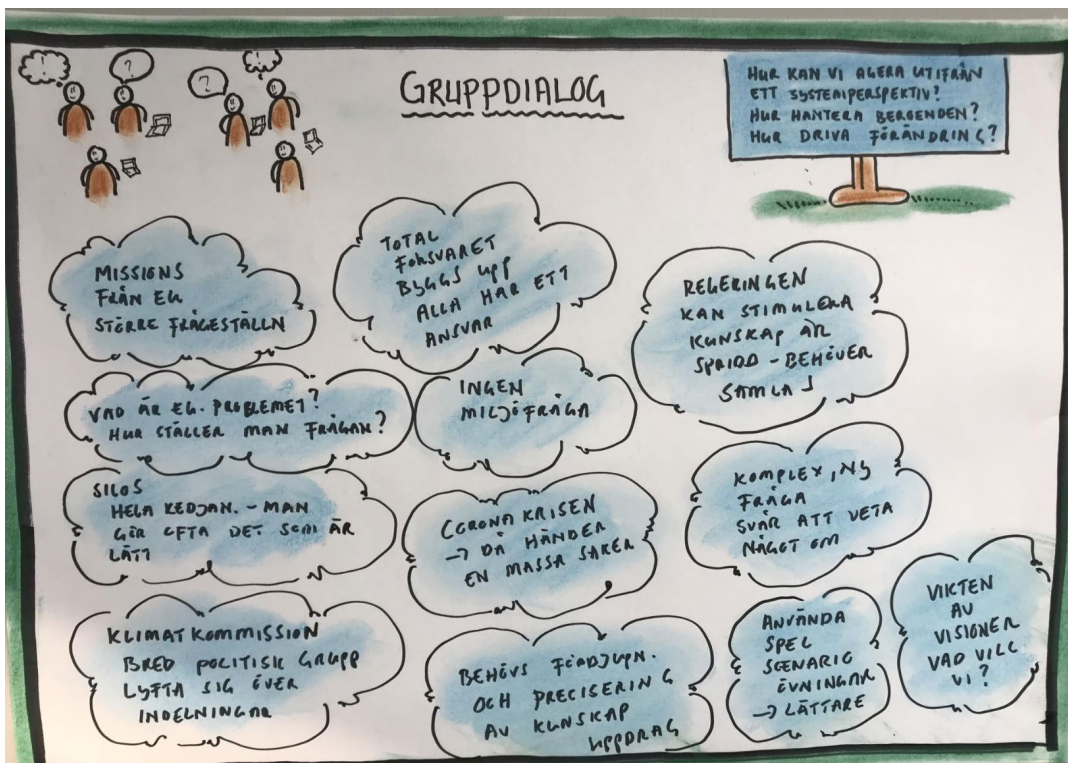 !
?
?
!
GRUPPDIALOG
HUR KAN VI AGERA UTIFRÅN
ETT SYSTEMPERSPEKTIV?
HUR HANTERA BEROENDEN?
HUR DRIVA FÖRÄNDRING?
MISSIONS
FRÅN EU
STÖRRE FRÅGESTÄLLN
TOTAL
FÖRSVARET
BYGGS UPP
ALLA HAR ETT
ANSVAR
REGERINGEN
KAN STIMULERA
KUNSKAP ÄR
SPRIDD - BEHÖVER
SAMLAS
VAD ÄR EG. PROBLEMET?
HUR STÄLLER MAN FRÅGAN?
INGEN
MILJÖFRÅGA
SILOS
HELA KEDJAN. - MAN
GÖR OFTA DET SOM ÄR
LÄTT
CORONAKRISEN
→ DÅ HÄNDER
EN MASSA SAKER
KOMPLEX, NY
FRÅGA
SVÅR ATT VETA
NÅGOT OM
KLIMATKOMMISSION
BRED POLITISK GRUPP
LYFTA SIG ÖVER
INDELNINGAR
BEHÖVS FÖRDJUPN.
OCH PRECISERING
AV KUNSKAP
UPPDRAG
ANVÄNDA
SPEL
SCENARIO
ÖVNINGAR
→ LÄTTARE
VIKTEN
AV
VISIONER
VAD VILL
VI?